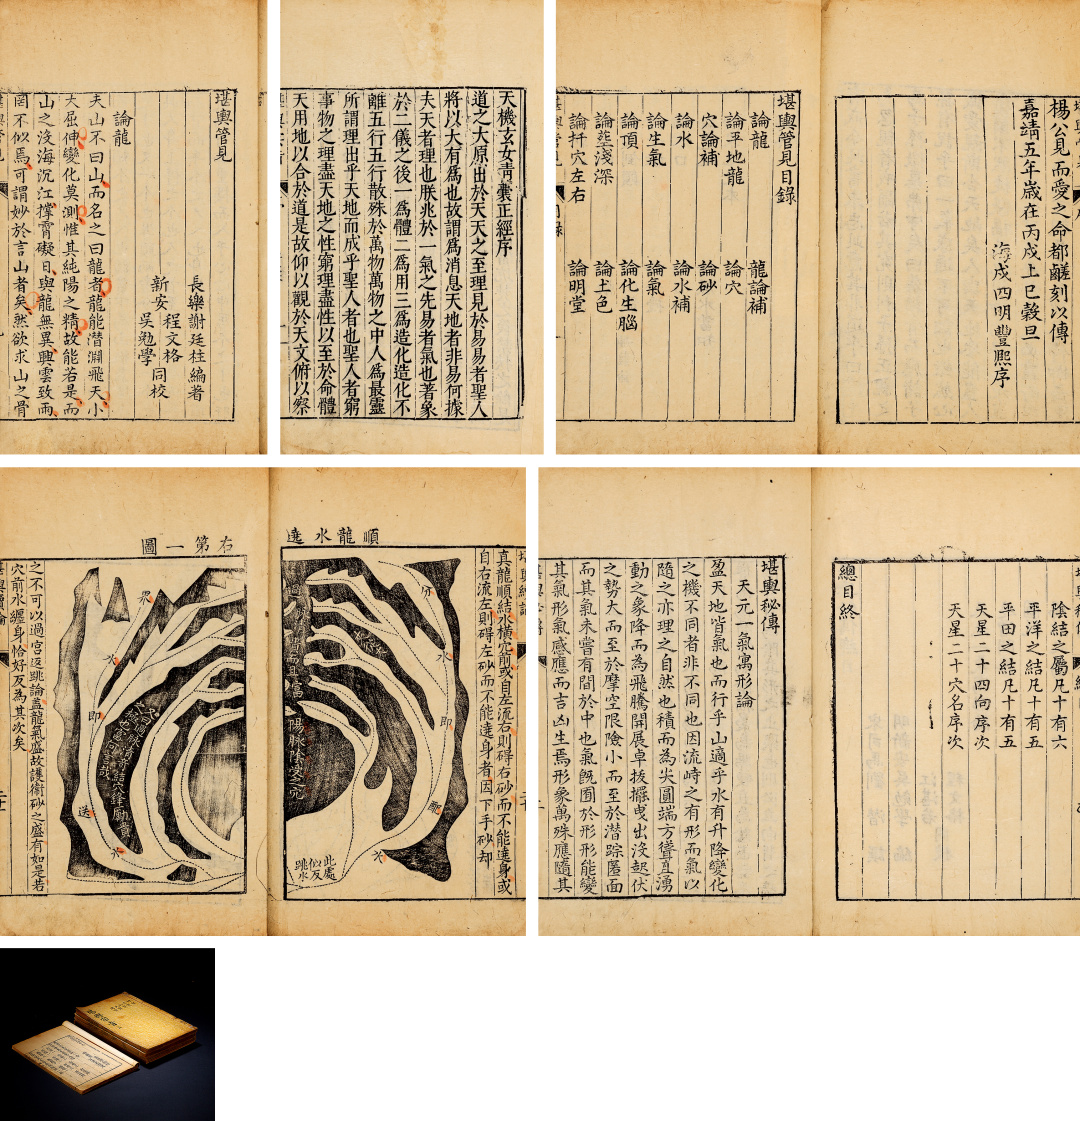 堪輿管見
長樂謝廷柱編著
新安
程文格
吳勉學
同校
論龍
夫山不曰山而名之曰龍者龍能潛淵飛天小
大屈伸變化莫測惟其純陽之精故能若是而
山之沒海沉江撑霄礙日與龍無異興雲致雨
罔不似焉可謂妙於言山者矣然欲求山之骨
天機玄女青囊正經序
道之大原出於天天之至理見於易易者聖人
將以大有為也故謂為消息天地者非易何據
夫天者理也朕兆於一氣之先易者氣也著象
於二儀之後一為體二為用三為造化造化不
離五行五行散殊於萬物萬物之中人為最靈
所謂理出乎天地而成乎聖人者也聖人者窮
事物之理盡天地之性窮理盡性以至於命體
天用地以合於道是故仰以觀於天文俯以察
楊公見而愛之命都鹺刻以傳
嘉靖五年歲在丙戌上巳穀旦
海戌四明豐熈序
堪輿管見目錄
論龍
龍論補
論平地龍
論穴
穴論補
論砂
論水
論水補
論生氣
論氣
論頂
論化生腦
論葬淺深
論土色
論扦穴左右
論明堂
順龍水遶
真龍順結水橫穴前或自左流右則碍右砂而不能遶身或
自右流左則碍左砂而不能遶身者因下手砂却
分
水
即
配
水
陽脉陰受穴
此處
似反
跳水
右第一圖
眾
水
即
送
水
之不可以過宮返跳論盖龍氣盛故護衛砂之盛有如是若
穴前水纏身恰好反為其次矣
陰結之屬凡十有六
平洋之結凡十有五
平田之結凡十有五
天星二十四向序次
天星二十穴名序次
總目終
堪輿秘傳
天元一氣寓形論
盈天地皆氣也而行乎山適乎水有升降變化
之機不同者非不同也因流峙之有形而氣以
隨之亦理之自然也積而為尖圓端方聳直湧
動之象降而為飛騰開展卓拔擺曳出沒起伏
之勢大而至於摩空限險小而至於潜踪匿面
而其氣未嘗有間於中也氣旣囿於形形能變
其氣形氣感應而吉凶生焉形象萬殊應隨其